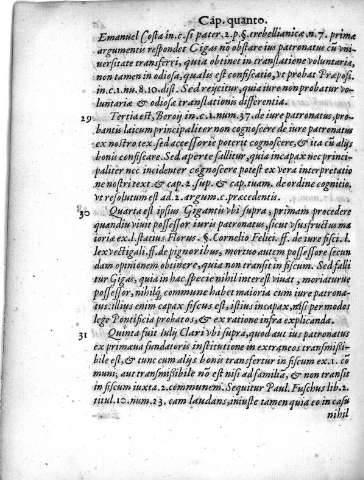 Cap. quanto.
Emanuel Costa in.c. si pater. 2. p. §. trebellianicæ n. 7. primæ
argumenti respondet Gigas nõ obstare ius patronatus cũ vni-
uersitate transferri, quia obtinet in translatione voluntaria,
non tamen in odiosa, qualis est confiscatio, vt probat Præpos.
in.c.1.nu.8.10.dist. Sed reijcitur, quia iure non probatur vo-
luntariæ & odiosæ translationis differentia.
29 Tertia est, Beroij in.c.1.num.37. de iure patronatus, pro-
bantis laicum principaliter non cognoscere de iure patronatus
ex nostro tex. sed accessoriè poterit cognoscere, & ita cũ alijs
bonis confiscare. Sed apertè fallitur, quia incapax nec princi-
paliter nec incidenter cognoscere potest ex vera interpretatio
ne nostri text. & cap. 2. sup. & cap. tuam. de ordine cognitio.
vt resolutum est ad. 2. argum. c. præcedentis.
30 Quarta est ipsius Gigantis vbi supra, primam procedere
quandiu viuit possessor iuris patronatus, sicut vsusfructus ma
ioriæ ex l. statius Florus. §. Cornelio Felici. ff. de iure fisci. l.
lex vectigali. ff. de pignoribus, mortuo autem possessore secun
dam opinionem obtinere, quia non transit in fiscum. Sed falli
tur Gigas, quia in hac specie nihil interest viuat, moriaturue
possessor, nihilq̃ commune habet maioria cum iure patrona-
tus. illius enim capax fiscus est, istius incapax, nisi per modos
lege Pontificia probatos, & ex ratione infra explicanda.
31 Quinta fuit Iulij Clari vbi supra, quod aut ius patronatus
ex primæua fundatoris institutione in extraneos transmissi-
bile est, & tunc cum alijs bonis transfertur in fiscum ex. 1. cõ
muni, aut transmissibile nõ est nisi ad familiã, & non transit
in fiscum iuxta. 2. communem. Sequitur Paul. Fuschus lib. 2.
titul. 10. num. 23. eam laudans, iniustè tamen quia eo in casu
nihil